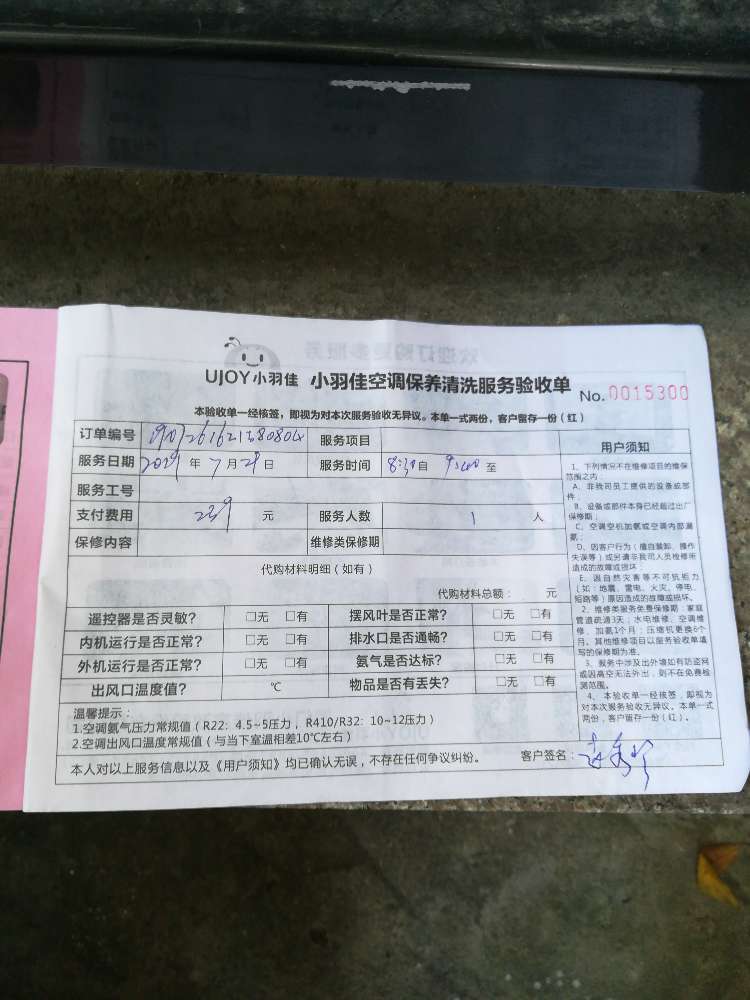 UJOY小羽佳 小羽佳空调保养清洗服务验收单 No.0015300
本验收单一经核签，即视为对本次服务验收无异议。本单一式两份，客户留存一份（红）
订单编号 服务项目
服务日期 年 7月29日 服务时间 8:30自 9:00至
服务工号
支付费用 239 元 服务人数 1 人
保修内容 维修类保修期
代购材料明细（如有）
代购材料总额： 元
遥控器是否灵敏？ □无 □有 摆风叶是否正常？ □无 □有
内机运行是否正常？ □无 □有 排水口是否通畅？ □无 □有
外机运行是否正常？ □无 □有 氨气是否达标？ □无 □有
出风口温度值？ ℃ 物品是否有丢失？ □无 □有
温馨提示：
1.空调氨气压力常规值（R22: 4.5~5压力，R410/R32: 10~12压力）
2.空调出风口温度常规值（与当下室温相差10℃左右）
本人对以上服务信息以及《用户须知》均已确认无误，不存在任何争议纠纷。 客户签名：
用户须知
1、下列情况不在维修项目的维保
范围之内
A、非我司员工提供的设备或部
件；
B、设备或部件本身已经超过出厂
保修期；
C、空调空机加氨或空调内部漏
氨；
D、因客户行为（擅自装卸、操作
失误等）或另请非我司人员检修所
造成的故障或损坏；
E、因自然灾害等不可抗拒力
（如：地震、雷电、火灾、停电、
短路等）原因造成的故障或损坏。
2、维修类服务免费保修期：家庭
管道疏通3天；水电维修、空调维
修、加氨1个月；压缩机更换6个
月。其他维修项目以服务验收单填
写的保修期为准。
3、服务中涉及出外墙如有防盗网
或因高空无法外出，则不在免费检
测范围。
4、本验收单一经核签，即视为
对本次服务验收无异议。本单一式
两份，客户留存一份（红）。